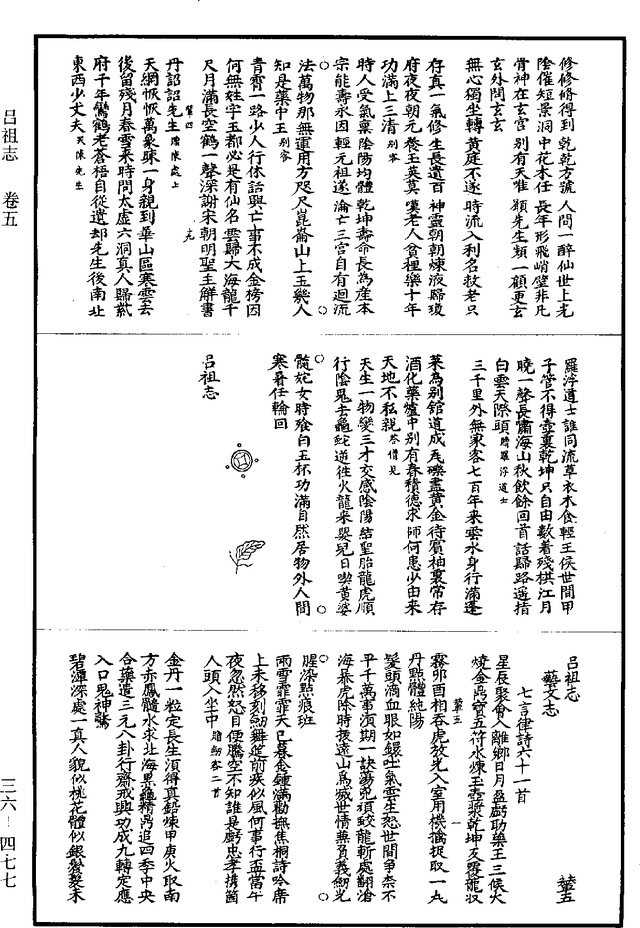 呂祖志　卷五
修修修得到乾乾方號人間一醉仙世上光
陰催短景洞中花木任長年形飛峭壁非凡
骨神在玄宮別有天唯願先生頻一顧更玄
玄外問玄玄
無心獨坐轉黃庭不逐時流入利名救老只
存真一氣修生長遣百神靈朝朝煉液歸瓊
府夜夜朝元養玉英莫嘆老人貧裡樂十年
功滿上三清別客
時人受氣稟陰陽均體乾坤壽命長為產本
宗能壽永因輕元祖遂淪亡三宮自有迴流
法萬物那無運用方咫尺崑崙山上玉幾人
知是藥中王別客
青霄一路少人行休話興亡事不成金榜因
何無姓字玉都必是有仙名雲歸大海龍千
尺月滿長空鶴一聲深謝宋朝明聖主解書
丹詔詔先生贈陳處士
天網恢恢萬象疎一身親到華山區寒雲去
後留殘月春雪來時問太虛六洞真人歸紫
府千年鸞鶴老蒼梧自從遺却先生後南北
東西少丈夫哭陳先生
羅浮道士誰同流草衣木食輕王侯世間甲
子管不得壺裏乾坤只自由數着殘棋江月
曉一聲長嘯海山秋飲餘回首話歸路遥指
白雲天際頭贈羅浮道士
三千里外無家客七百年來雲水身行滿蓬
萊為別館道成瓦礫盡黃金待賓柚裏常存
酒化藥爐中別有春積德求師何患少由來
天地不私親答僧見
天生一物變三才交感陰陽結聖胎龍虎順
行陰鬼去龜蛇逆往火龍來嬰兒日喫黃婆
髓姹女時飡白玉杯功滿自然居物外人間
寒暑任輪回
呂祖志
呂祖志　輦五
藝文志
七言律詩六十一首
星辰聚會入離鄉日月盈虧助藥王三候火
燒金鼎寶五符水煉玉壺漿乾坤反覆龍收
霧卯酉相吞虎放光入室用機擒捉取一丸
丹點體純陽
輦五　一
髮頭滴血眼如鐶吐氣雲生怒世間爭柰不
平千萬事須期一訣蕩兇頑蛟龍斬處翻滄
海暴虎除時拔遠山為滅世情兼負義劒光
腥染點痕班
雨雪霏霏天已暮金鍾滿勸撫焦桐詩吟席
上未移刻劒舞筵前疾似風何事行盃當午
夜忽然怒目便騰空不知誰是虧忠孝携箇
人頭入坐中贈劒客二首
金丹一粒定長生須得真鉛煉甲庚火取南
方赤鳳髓水求北海黑龜精鼎追四季中央
合藥遣三元八卦行齋戒興功成九轉定應
入口鬼神驚
碧潭深處一真人貌似桃花體似銀鬢髮未
三六—四七七